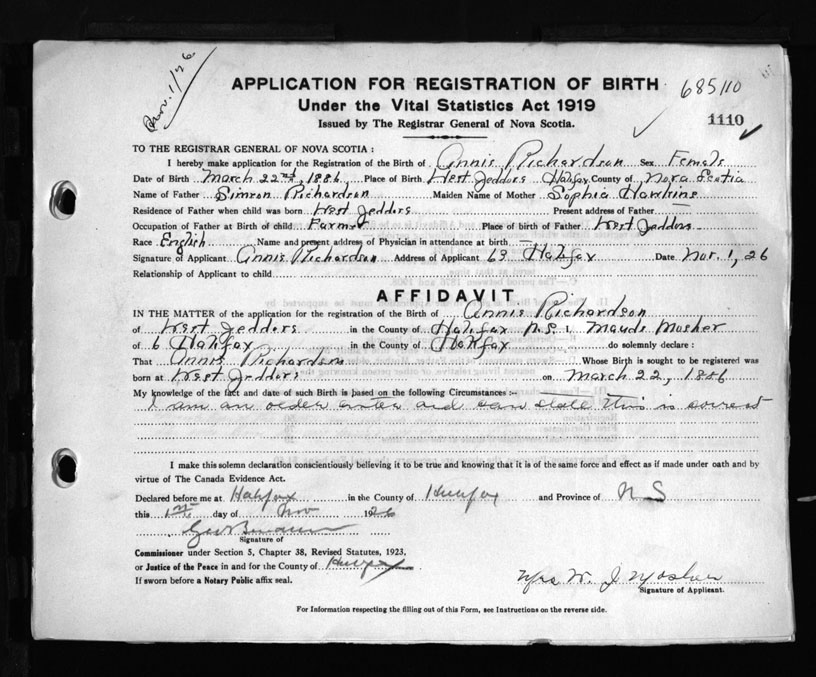 Nov. 1/26
APPLICATION FOR REGISTRATION OF BIRTH
685110
Under the Vital Statistics Act 1919
1110
Issued by The Registrar General of Nova Scotia.
TO THE REGISTRAR GENERAL OF NOVA SCOTIA:
I hereby make application for the Registration of the Birth of Annis Richardson Sex Female
Date of Birth March 22nd, 1886 Place of Birth West Jeddors Halifax County of Nova Scotia
Name of Father Simron Richardson Maiden Name of Mother Sophia Hawkins
Residence of Father when child was born West Jeddors Present address of Father —
Occupation of Father at Birth of child Farmer Place of birth of Father West Jeddors
Race English Name and present address of Physician in attendance at birth —
Signature of Applicant Annis Richardson Address of Applicant Halifax Date Nov. 1, 26
Relationship of Applicant to child
AFFIDAVIT
IN THE MATTER of the application for the registration of the Birth of Annis Richardson
of West Jeddors in the County of Halifax N.S. I, Maude Mosher
of 6 Halifax in the County of Halifax do solemnly declare:
That Annis Richardson Whose Birth is sought to be registered was
born at West Jeddors on March 22, 1886
My knowledge of the fact and date of such Birth is based on the following Circumstances:-
I am an older sister and can state this is correct
I make this solemn declaration conscientiously believing it to be true and knowing that it is of the same force and effect as if made under oath and by
virtue of The Canada Evidence Act.
Declared before me at Halifax in the County of Halifax and Province of N S
this 1st day of Nov 1926
Signature of
Commissioner under Section 5, Chapter 38, Revised Statutes, 1923,
or Justice of the Peace in and for the County of Halifax
If sworn before a Notary Public affix seal.
Mrs W. J Mosher
Signature of Applicant.
For Information respecting the filling out of this Form, see Instructions on the reverse side.